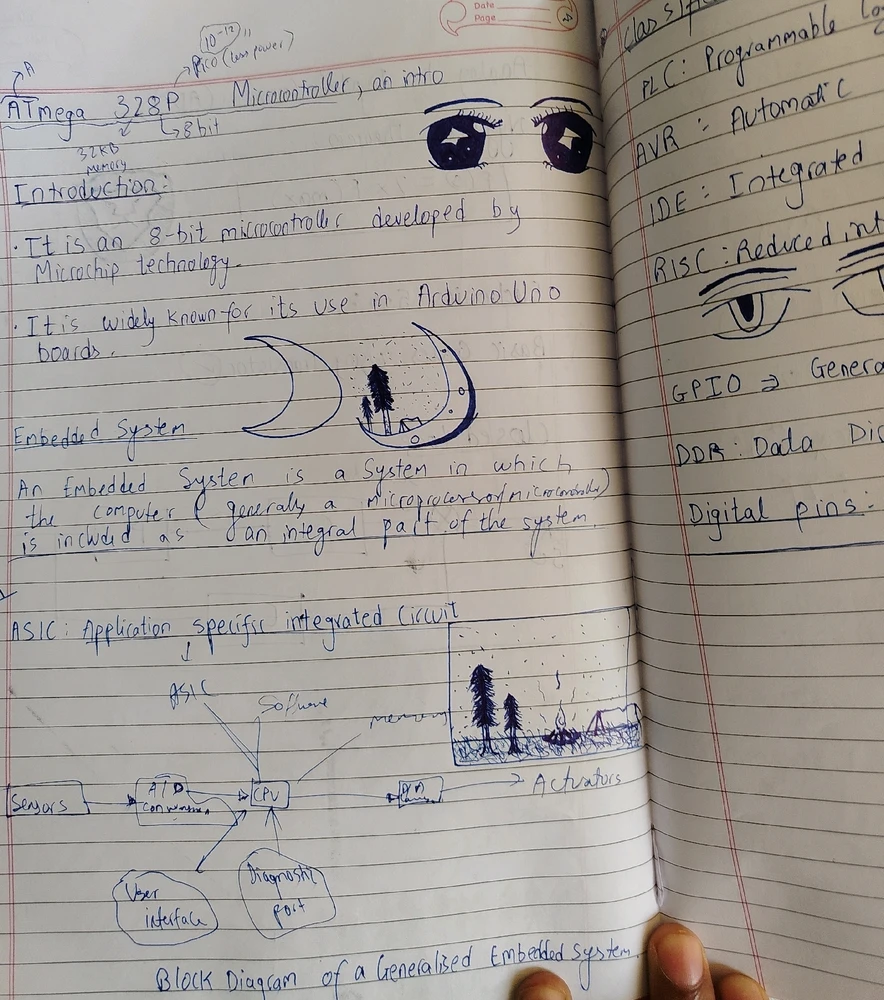 Date
Page
10⁻¹²
Pico (less power)
A
ATmega 328P Microcontroller, an intro
8bit
32KB
memory
Introduction:
· It is an 8-bit microcontroller developed by
Microchip technology.
· It is widely known for its use in Arduino Uno
boards.
Embedded System
An Embedded System is a System in which
the computer ( generally a microprocessor/microcontroller)
is included as an integral part of the system.
ASIC: Application specific integrated Circuit
ASIC
Software
memory
Sensors
A/D
CPU
Actuators
User
interface
Diagnostic
port
Block Diagram of a Generalised Embedded System.
PLC: Programmable
AVR : Automatic
IDE : Integrated
RISC : Reduced
GPIO ⇒
DDR : Data
Digital pins: